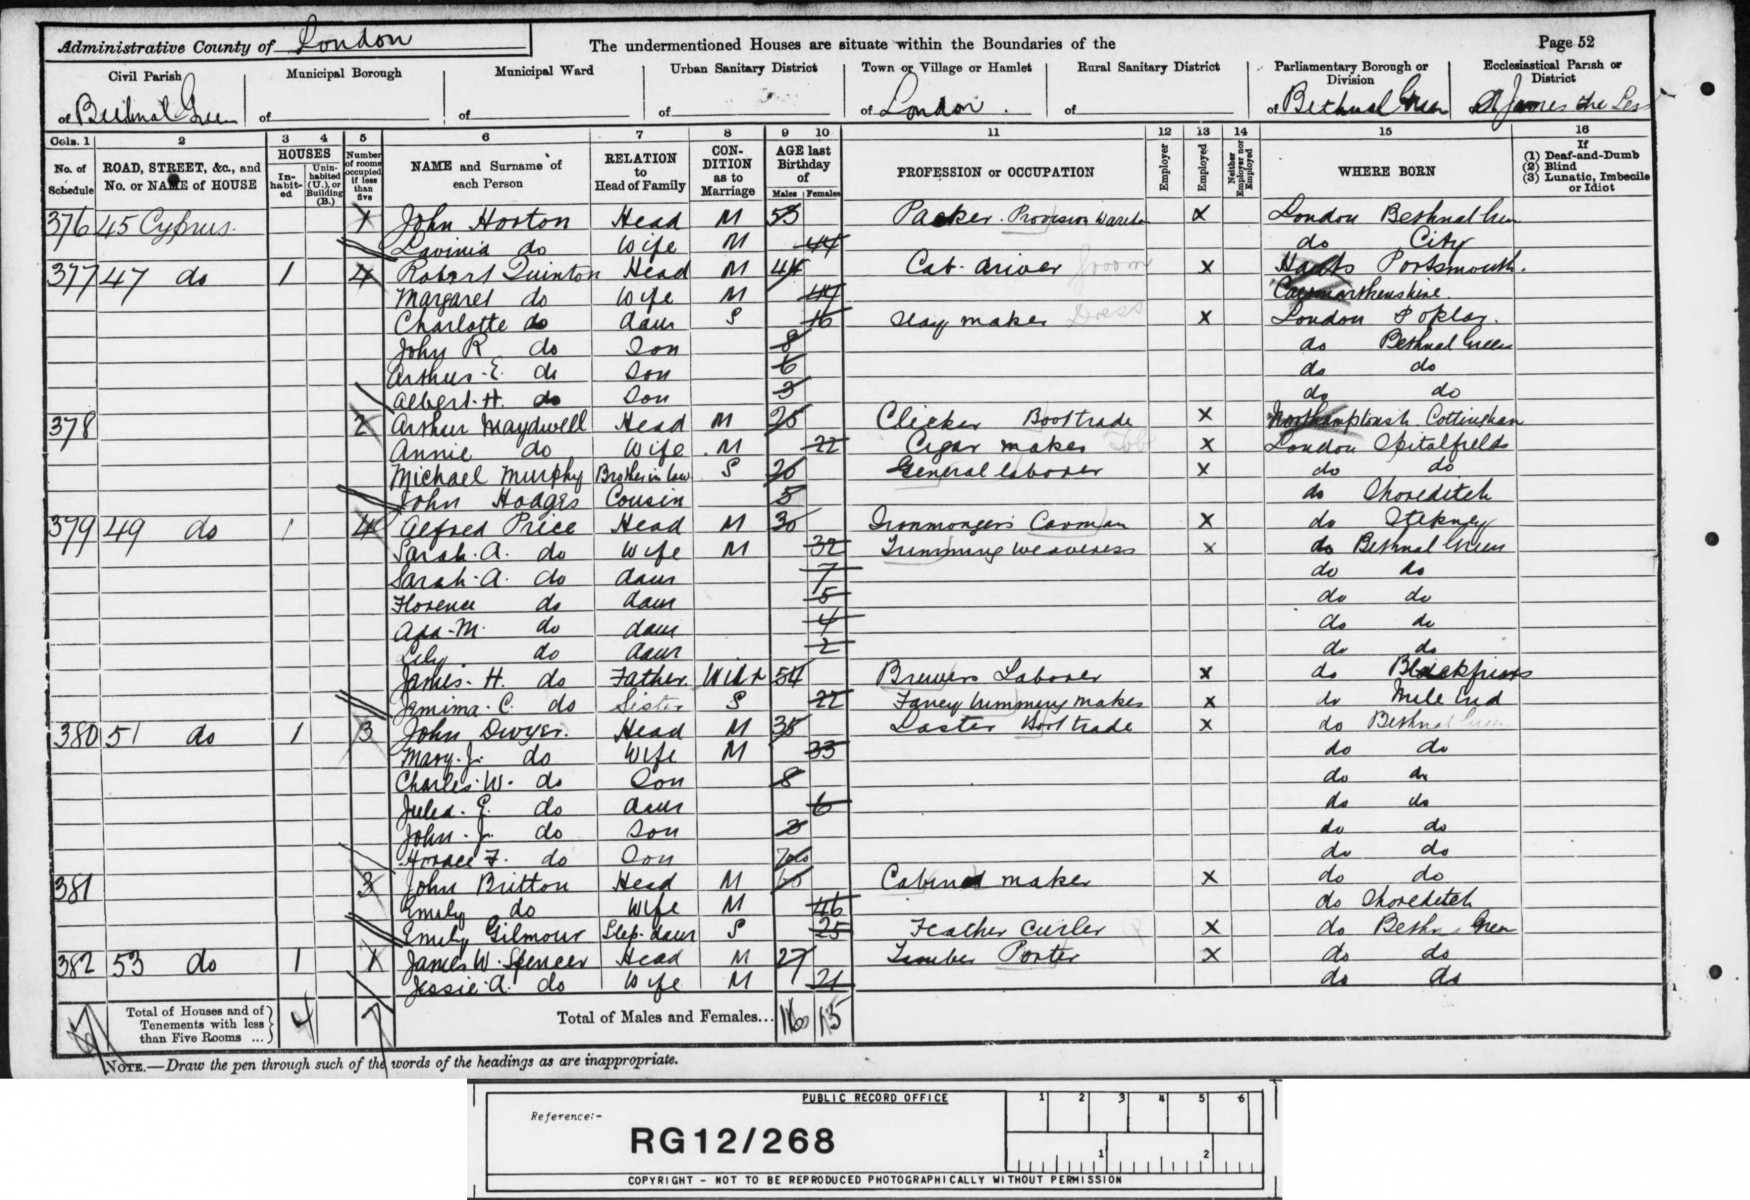 Administrative County of London
The undermentioned Houses are situate within the Boundaries of the
Page 52
Civil Parish
Municipal Borough
Municipal Ward
Urban Sanitary District
Town or Village or Hamlet
Rural Sanitary District
Parliamentary Borough or Division
Ecclesiastical Parish or District
of Bethnal Green
of
of
of
of London
of
of Bethnal Green
St James the Less
Cols. 1 2 3 4 5 6 7 8 9 10 11 12 13 14 15 16
No. of Schedule
ROAD, STREET, &c., and No. or NAME of HOUSE
HOUSES
In-habit-ed
Unin-habited (U.), or Building (B.)
Number of rooms occupied if less than five
NAME and Surname of each Person
RELATION to Head of Family
CON-DITION as to Marriage
AGE last Birthday of
Males Females
PROFESSION or OCCUPATION
Employer
Employed
Neither Employer nor Employed
WHERE BORN
If
(1) Deaf-and-Dumb
(2) Blind
(3) Lunatic, Imbecile or Idiot
376 45 Cyprus 1 John Horton Head M 53 Packer Provision X London Bethnal Green
Lavinia do Wife M 44 do City
377 47 do 1 4 Robert Quinton Head M 44 Cab driver groom X Hants Portsmouth.
Margaret do Wife M Carmarthenshire
Charlotte do daur S 16 maker Dress X London Poplar.
John R do Son 8 do Bethnal Green
Arthur E. do Son 6 do do
Albert H. do Son 3 do do
378 2 Arthur Maydwell Head M 25 Clicker Boot trade X Northamptonsh Cottingham
Annie do Wife M 22 Cigar maker Tob X London Spitalfields
Michael Murphy Brother in law S 26 General laborer X do do
John Hodges Cousin 5 do Shoreditch
379 49 do 1 4 Alfred Price Head M 30 Ironmongers Carman X do Stepney
Sarah A. do Wife M 32 Trimming Weaveress X do Bethnal Green
Sarah A. do daur 7 do do
Florence do daur 5 do do
Ada M. do daur 4 do do
Lily do daur 2 do do
James H. do Father Widr 54 Brewers Laborer X do Blackfriars
Jemima C. do Sister S 22 Fancy trimming maker X do Mile End
380 51 do 1 3 John Dwyer. Head M 35 Laster Boot trade X do Bethnal Green
Mary J. do Wife M 33 do do
Charles W. do Son 8 do do
Julia E. do daur 6 do do
John J. do Son 3 do do
Horace F. do Son do do
381 3 John Britton Head M Cabinet maker X do do
Emily do Wife M 46 do Shoreditch
Emily Gilmour Step-daur S 25 Feather Curler X do Beth Green
382 53 do 1 1 James W. Spencer Head M 27 Timber Porter X do do
Jessie A. do Wife M 21 do do
Total of Houses and of Tenements with less than Five Rooms ...
4 7
Total of Males and Females... 16 15
NOTE.—Draw the pen through such of the words of the headings as are inappropriate.
PUBLIC RECORD OFFICE
1 2 3 4 5 6
Reference:-
RG12/268
1 2
COPYRIGHT - NOT TO BE REPRODUCED PHOTOGRAPHICALLY WITHOUT PERMISSION